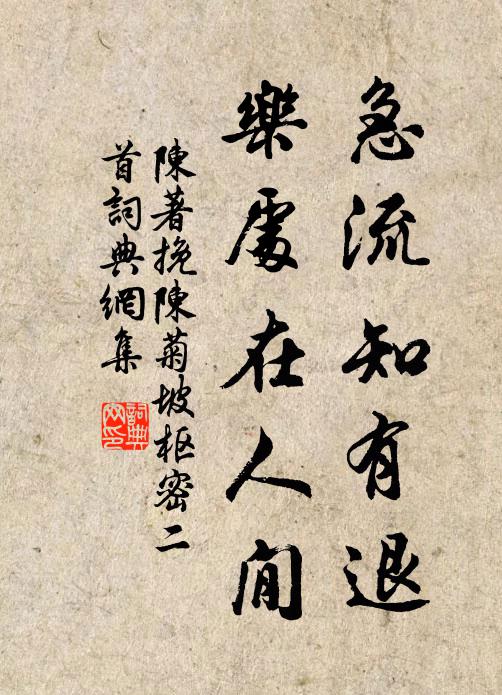 急流知有退
樂處在人閒
陳著挽陳菊坡枢密二
首詞典網集
詞典网印